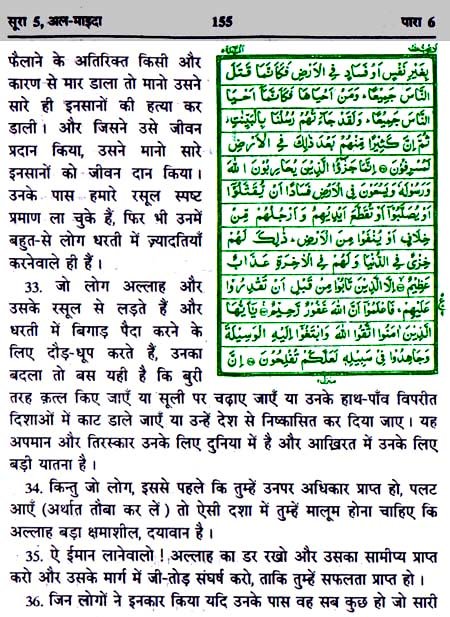 सूरा 5, अल-माइदा 155 पारा 6
फैलाने के अतिरिक्त किसी और
कारण से मार डाला तो मानो उसने
सारे ही इनसानों की हत्या कर
डाली। और जिसने उसे जीवन
प्रदान किया, उसने मानो सारे
इनसानों को जीवन दान किया।
उनके पास हमारे रसूल स्पष्ट
प्रमाण ला चुके हैं, फिर भी उनमें
बहुत-से लोग धरती में ज़्यादतियाँ
करनेवाले ही हैं।
33. जो लोग अल्लाह और
उसके रसूल से लड़ते हैं और
धरती में बिगाड़ पैदा करने के
लिए दौड़-धूप करते हैं, उनका
बदला तो बस यही है कि बुरी
بِغَيْرِ نَفْسٍ أَوْ فَسَادٍ فِي الْأَرْضِ فَكَأَنَّمَا قَتَلَ
النَّاسَ جَمِيعًا، وَمَنْ أَحْيَاهَا فَكَأَنَّمَا أَحْيَا
النَّاسَ جَمِيعًا، وَلَقَدْ جَاءَتْهُمْ رُسُلُنَا بِالْبَيِّنٰتِ
ثُمَّ إِنَّ كَثِيرًا مِنْهُمْ بَعْدَ ذٰلِكَ فِي الْأَرْضِ
لَمُسْرِفُونَ ۝ إِنَّمَا جَزٰؤُا الَّذِينَ يُحَارِبُونَ اللهَ
وَرَسُولَهُ وَيَسْعَوْنَ فِي الْأَرْضِ فَسَادًا أَنْ يُقَتَّلُوا
أَوْ يُصَلَّبُوا أَوْ تُقَطَّعَ أَيْدِيهِمْ وَأَرْجُلُهُمْ مِنْ
خِلَافٍ أَوْ يُنْفَوْا مِنَ الْأَرْضِ، ذٰلِكَ لَهُمْ
خِزْيٌ فِي الدُّنْيَا وَلَهُمْ فِي الْآخِرَةِ عَذَابٌ
عَظِيمٌ ۝ إِلَّا الَّذِينَ تَابُوا مِنْ قَبْلِ أَنْ تَقْدِرُوا
عَلَيْهِمْ، فَاعْلَمُوا أَنَّ اللهَ غَفُورٌ رَحِيمٌ ۝ يٰأَيُّهَا
الَّذِينَ آمَنُوا اتَّقُوا اللهَ وَابْتَغُوا إِلَيْهِ الْوَسِيلَةَ
وَجَاهِدُوا فِي سَبِيلِهِ لَعَلَّكُمْ تُفْلِحُونَ ۝ إِنَّ
तरह क़त्ल किए जाएँ या सूली पर चढ़ाए जाएँ या उनके हाथ-पाँव विपरीत
दिशाओं में काट डाले जाएँ या उन्हें देश से निष्कासित कर दिया जाए। यह
अपमान और तिरस्कार उनके लिए दुनिया में है और आख़िरत में उनके लिए
बड़ी यातना है।
34. किन्तु जो लोग, इससे पहले कि तुम्हें उनपर अधिकार प्राप्त हो, पलट
आएँ (अर्थात तौबा कर लें) तो ऐसी दशा में तुम्हें मालूम होना चाहिए कि
अल्लाह बड़ा क्षमाशील, दयावान है।
35. ऐ ईमान लानेवालो! अल्लाह का डर रखो और उसका सामीप्य प्राप्त
करो और उसके मार्ग में जी-तोड़ संघर्ष करो, ताकि तुम्हें सफलता प्राप्त हो।
36. जिन लोगों ने इनकार किया यदि उनके पास वह सब कुछ हो जो सारी